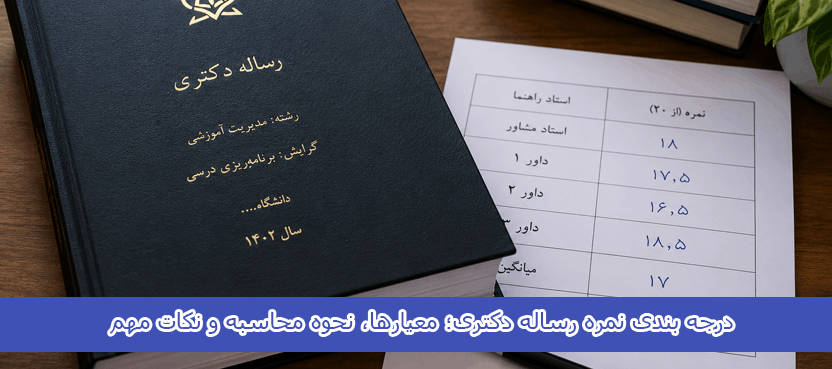 رساله دکتری
رشته: مدیریت آموزشی
گرایش: برنامه‌ریزی درسی
دانشگاه....
سال ۱۴۰۲
نمره (از ۲۰) استاد راهنما
۱۸ استاد مشاور
۱۷,۵ داور ۱
۱۶,۵ داور ۲
۱۸,۵ داور ۳
۱۷ میانگین
درجه بندی نمره رساله دکتری؛ معیارها، نحوه محاسبه و نکات مهم